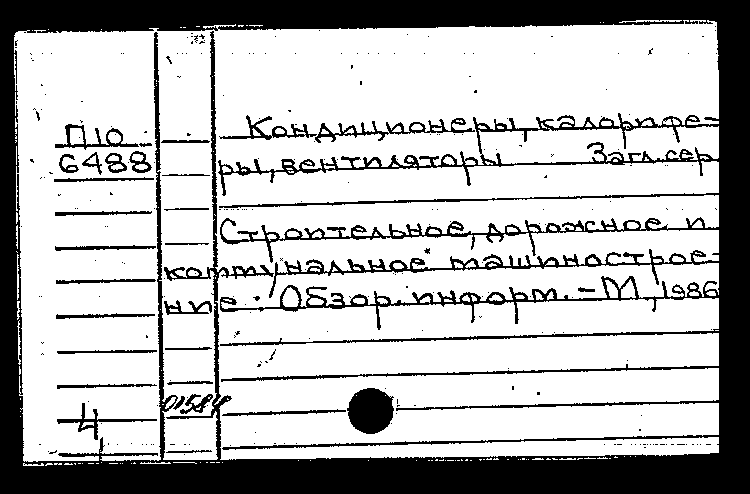 П10
6488
Кондиционеры, калорифе-
ры, вентиляторы Загл. сер.
Строительное, дорожное и
коммунальное машинострое-
ние: Обзор. информ. – М., 1986
01584
4